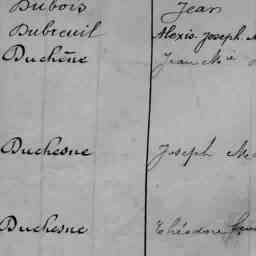 Dubois Jean
Dubreuil Alexis Joseph
Duchêne Jean Mie
Duchesne Joseph
Duchesne Théodore